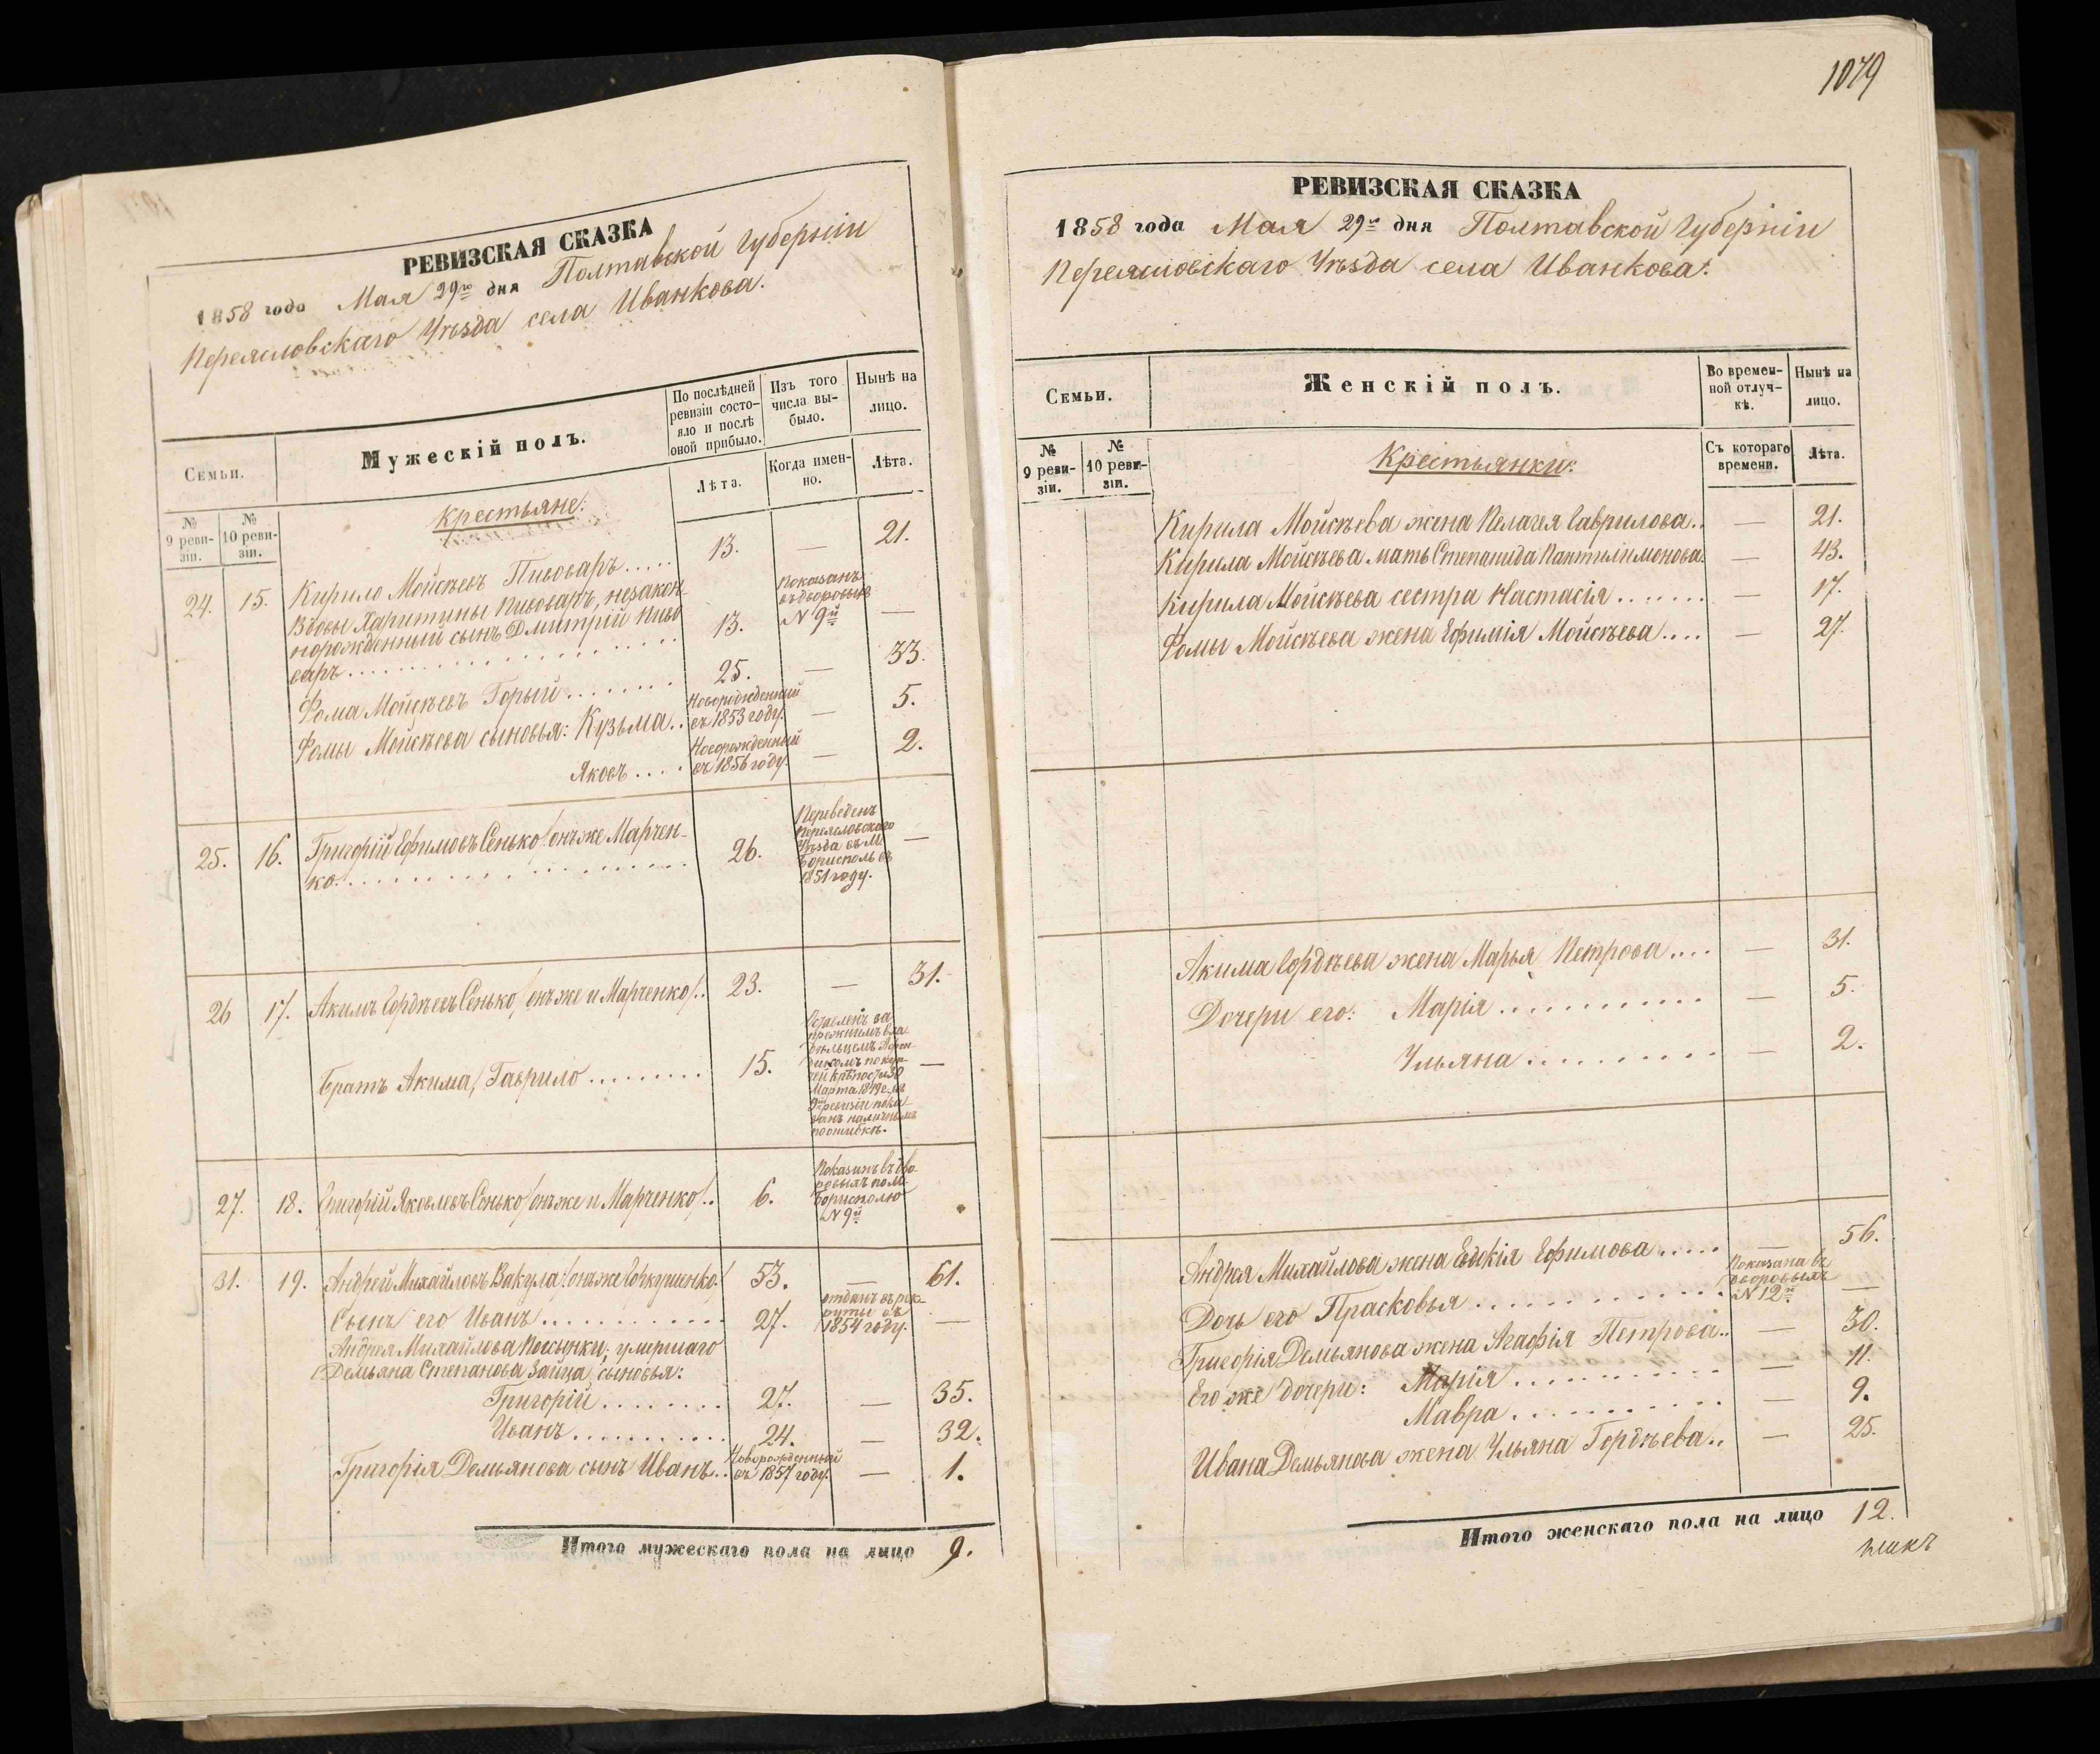 РЕВИЗСКАЯ СКАЗКА
1858 года Мая 29го дня Полтавской Губерніи
Переясловскаго Уѣзда села Иванкова.
Семьи.
Мужескій полъ.
По послѣдней ревизіи состо-
яло и послѣ оной прибыло.
Изъ того числа вы-
было.
Нынѣ на лицо.
№ 9 реви-
зіи.
№ 10 реви-
зіи.
Лѣта.
Когда имен-
но.
Лѣта.
Крестьяне:
24. 15. Кирило Мойсѣевъ Пивоваръ..... 13. — 21.
Вдовы Харитины Пивоваръ, незакон-
норожденный сынъ Дмитрій Пиво
варъ.................... 13. Показанъ
въ дворовыхъ
N 9й —
Фома Мойсѣевъ Горый........ 25. — 33.
Фомы Мойсѣева сыновья: Кузьма.. Новорожденный
въ 1853 году. — 5.
Яковъ.... Новорожденный
въ 1856 году. — 2.
25. 16. Григорій Ефимовъ Сенько /онъ же Марчен-
ко.................... 26. Переведенъ
Переясловскаго
Уѣзда въ М.
Борисполь въ
1851 году. —
26 17. Акимъ Гордѣевъ Сенько /онъ же и Марченко/.. 23. — 31.
Братъ Акима, Гаврило......... 15. за
прежнимъ вла
дѣльцемъ
по куп-
чей крѣпости 30
Марта 1849 г. въ
9й ревизіи пока
занъ наличнымъ
по ошибкѣ. —
27. 18. Григорій Яковлевъ Сенько /онъ же и Марченко/.. 6. Показанъ въ дво-
ровыхъ по М.
Борисполю
N 9й
31. 19. Андрей Михайловъ Вакула /онъ же Горкушенко/ 53. — 61.
Сынъ его Иванъ............ 27. отданъ въ рек-
руты въ
1854 году. —
Андрея Михайлова Посынки; умершаго
Демьяна Степанова Зайца, сыновья:
Григорій........ 27. — 35.
Иванъ........... 24. — 32.
Григорія Демьянова сынъ Иванъ.. Новорожденный
въ 1857 году. — 1.
Итого мужескаго пола на лицо 9.
1079
РЕВИЗСКАЯ СКАЗКА
1858 года Мая 29го дня Полтавской Губерніи
Переясловскаго Уѣзда села Иванкова.
Семьи.
Женскій полъ.
Во времен-
ной отлуч-
кѣ.
Нынѣ на
лицо.
№
9 реви-
зіи.
№
10 реви-
зіи.
Съ котораго
времени.
Лѣта.
Крестьянки:
Кирила Мойсѣева жена Пелагея Гаврилова.. — 21.
Кирила Мойсѣева мать Степанида Пантилимонова. — 43.
Кирила Мойсѣева сестра Настасія....... — 17.
Фомы Мойсѣева жена Ефимія Мойсѣева.... — 27.
Акима Гордѣева жена Марья Петрова.... — 31.
Дочери его: Марія........... — 5.
Ульяна.......... — 2.
Андрея Михайлова жена Евдокія Ефимова..... — 56.
Дочь его Прасковья............. Показана въ
дворовыхъ
N 12й —
Григорія Демьянова жена Агафія Петрова.. — 30.
Его же дочери: Марія........... — 11.
Мавра........... — 9.
Ивана Демьянова жена Ульяна Гордѣева.. — 25.
Итого женскаго пола на лицо 12.